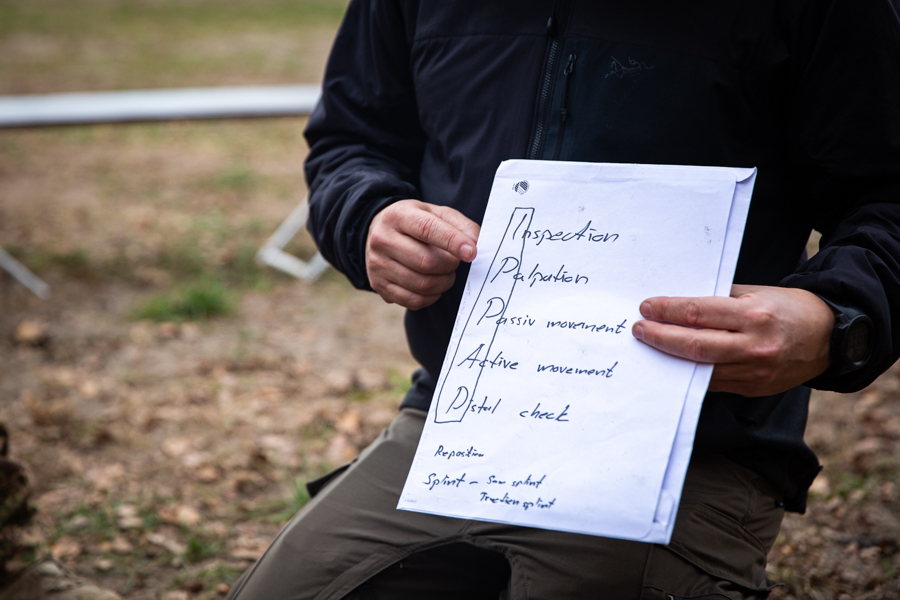 Inspection
Palpation
Passiv movement
Active movement
Distal check
Reposition
Splint - Sam splint
Traction splint